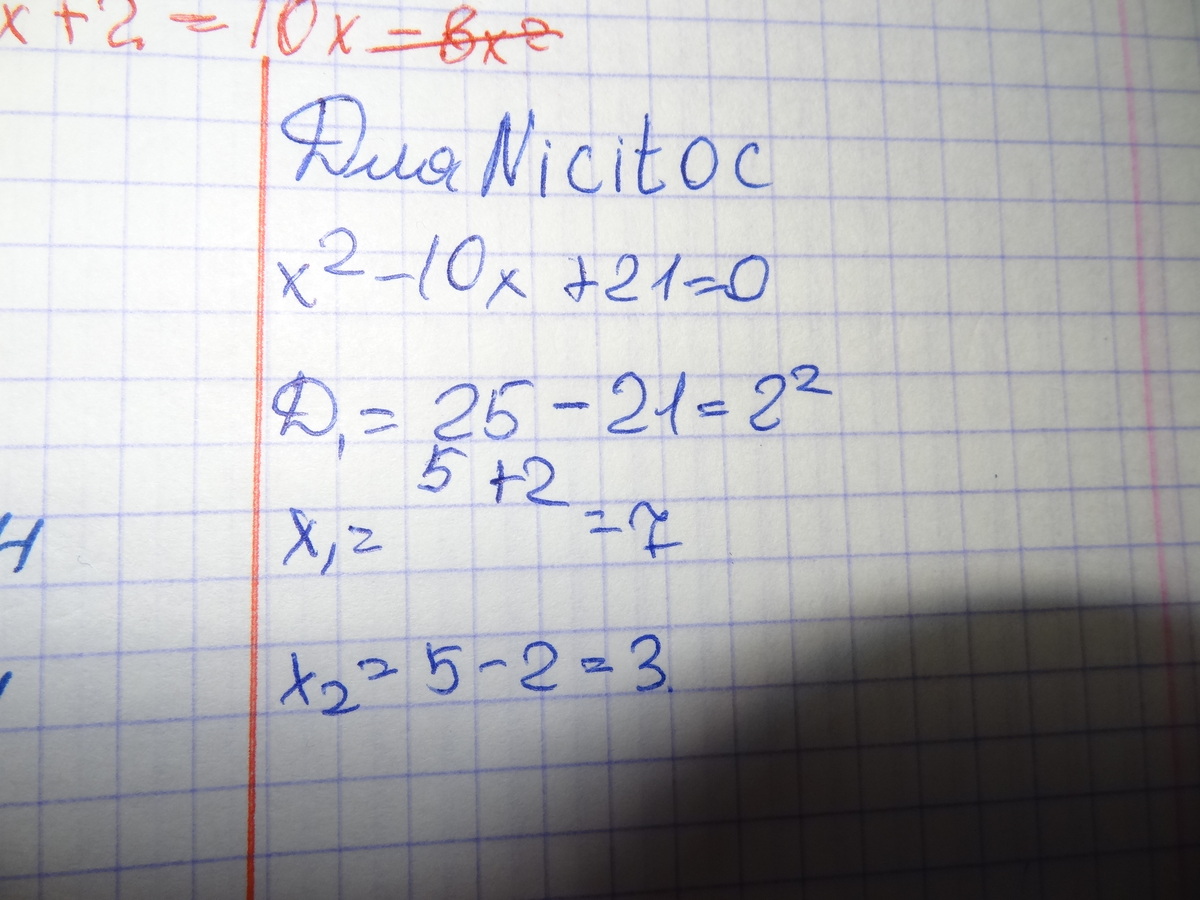 x + 2 = 10x = 8x²
Для NicitOC
x² - 10x + 21 = 0
Д₁ = 25 - 21 = 2²
x₁ = 5 + 2 = 7
x₂ = 5 - 2 = 3.
н